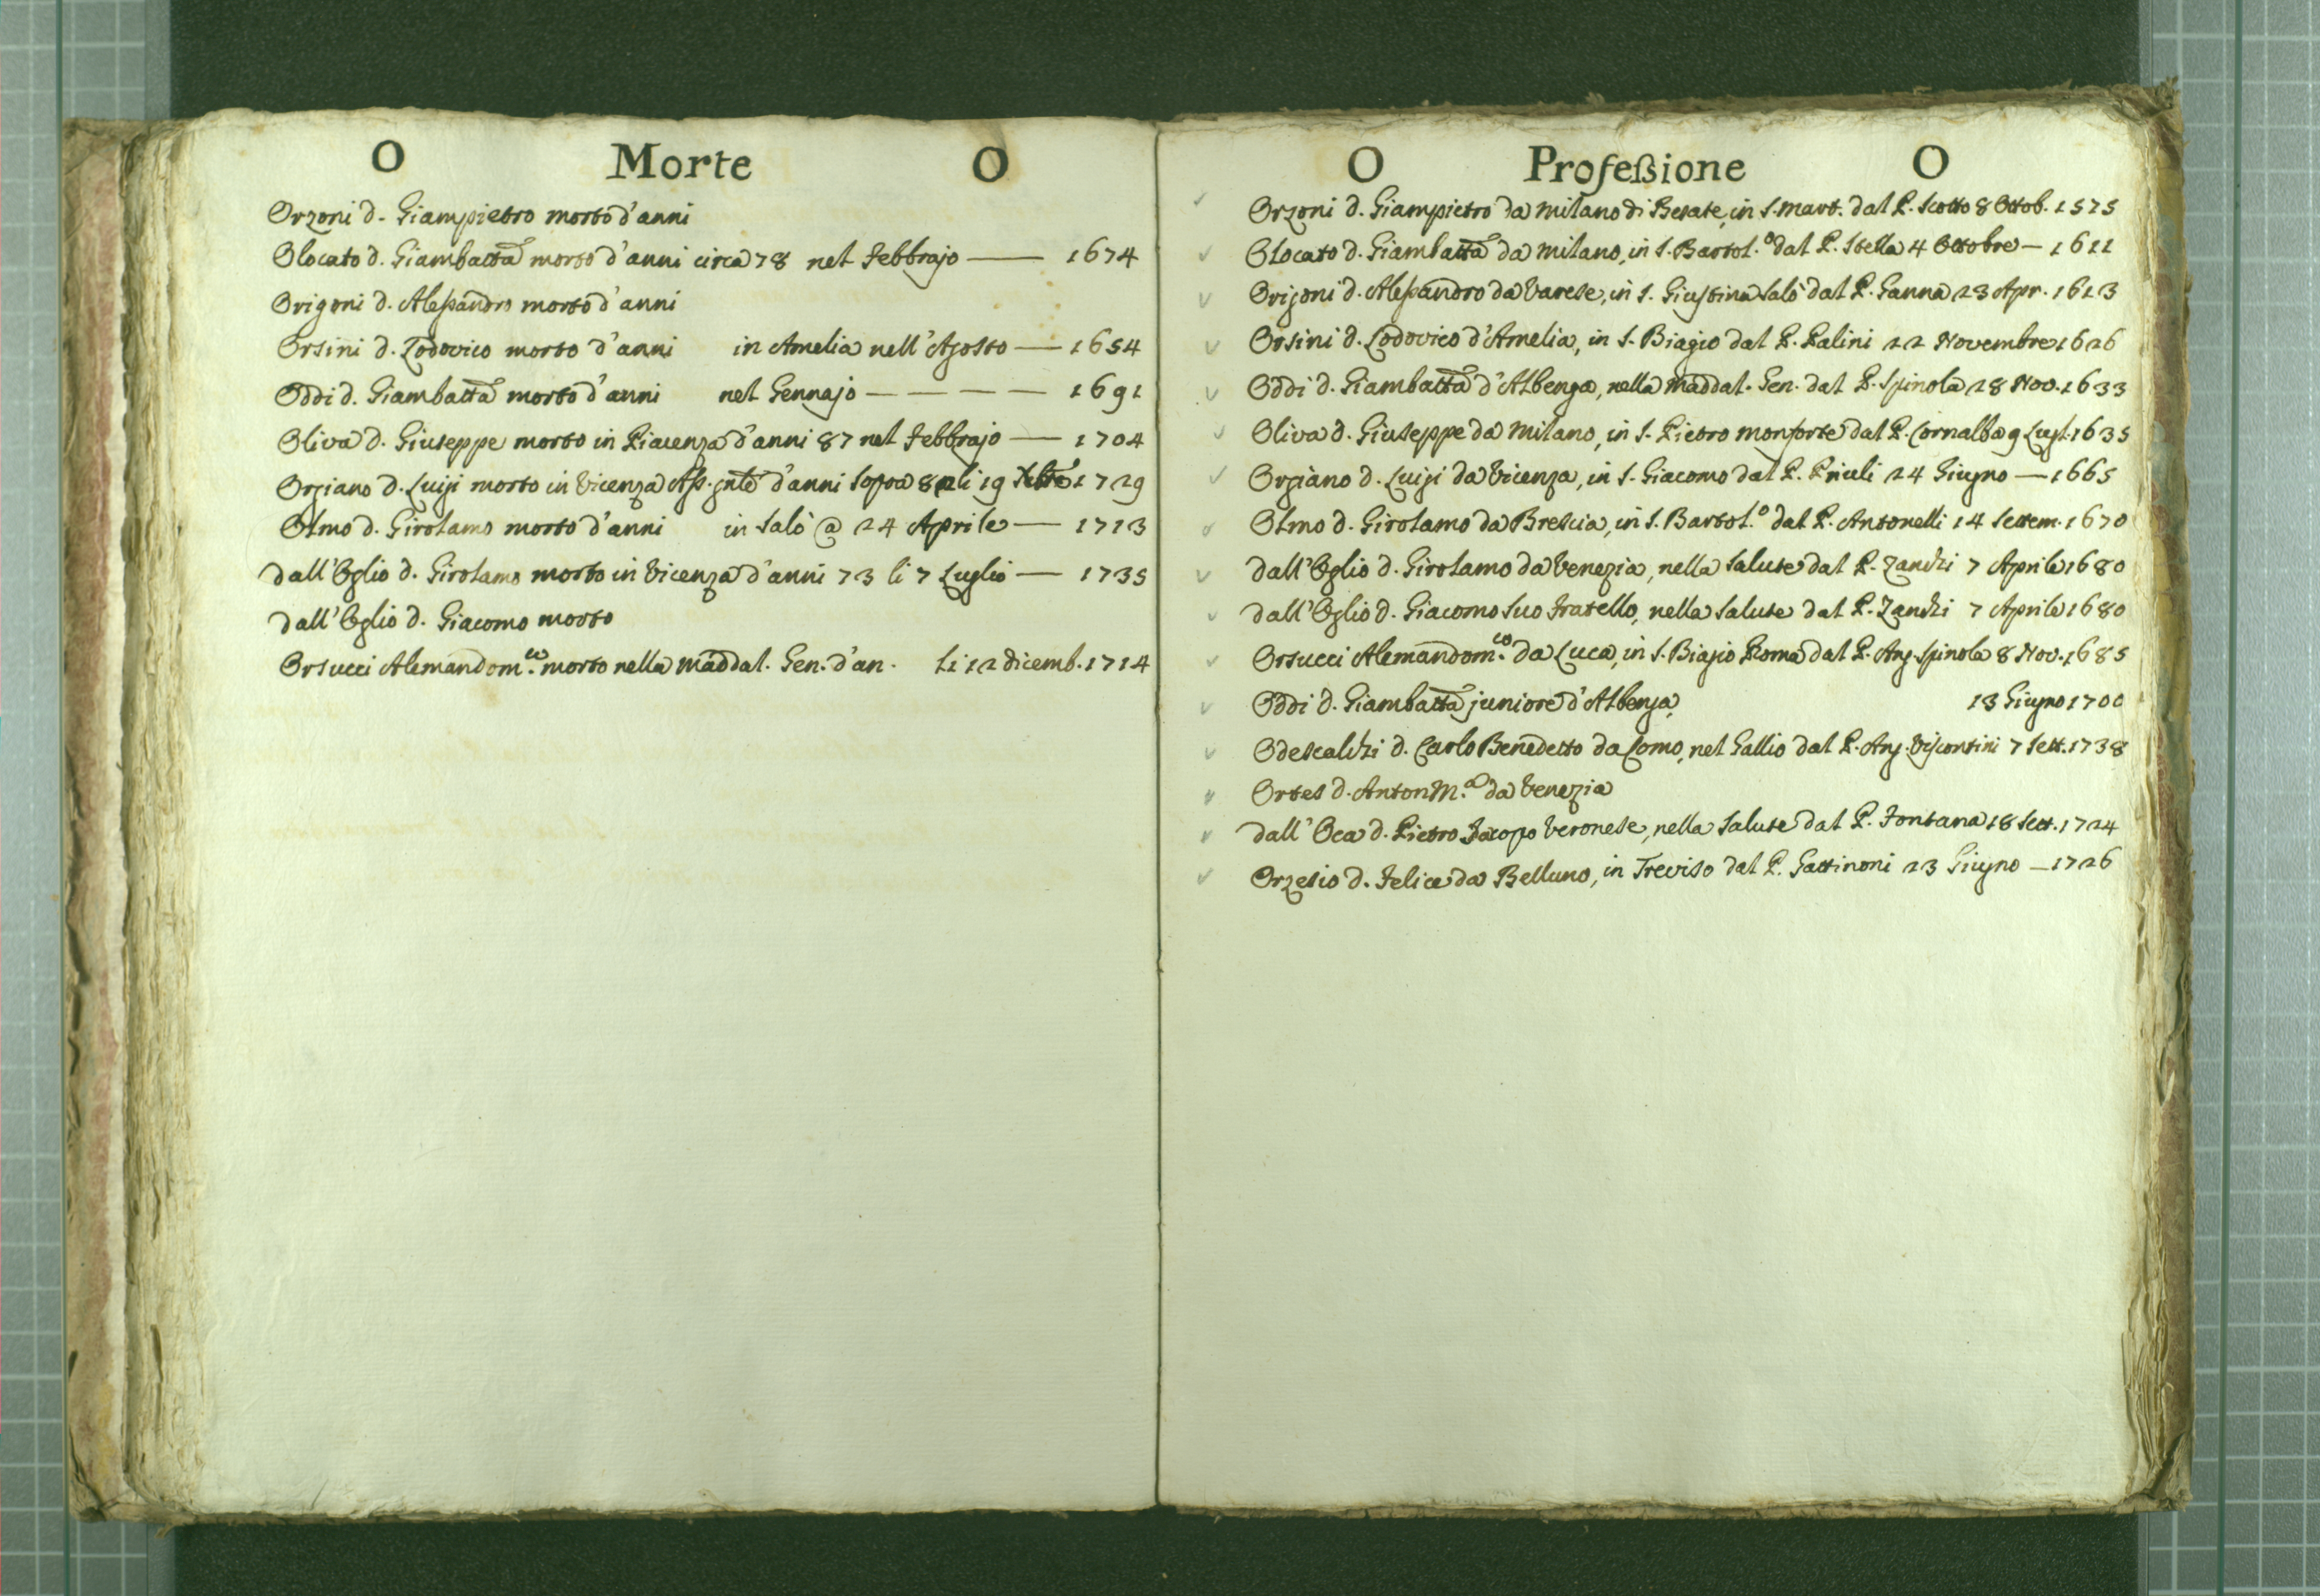 O Morte O
Orzoni d. Giampietro morto d'anni
Olocato d. Giambatta morto d'anni circa 78 nel Febbrajo — 1674
Origoni d. Alessandro morto d'anni
Orsini d. Lodovico morto d'anni in Amelia nell'Agosto — 1654
Oddi d. Giambatta morto d'anni nel Gennajo — — — — 1691
Oliva d. Giuseppe morto in Piacenza d'anni 87 nel Febbrajo — 1704
Orgiano d. Luigi morto in Vicenza Ass.gnte d'anni sopra li 19 1729
Olmo d. Girolamo morto d'anni in Salò @ 24 Aprile — 1713
dall'Oglio d. Girolamo morto in Vicenza d'anni 73 li 7 Luglio — 1735
dall'Oglio d. Giacomo morto
Orsucci Alemandom.co morto nella Maddal. Gen. d'an. li 12 dicemb. 1714
O Professione O
Orzoni d. Giampietro da Milano di Besate, in S. Mart. dal P. Scotto 8 Ottob. 1575
Olocato d. Giambatta da Milano, in S. Bartol.o dal P. Stella 4 Ottobre — 1611
Origoni d. Alessandro da Varese, in S. Giustina Salò dal P. Ganna 23 Apr. 1613
Orsini d. Lodovico d'Amelia, in S. Biagio dal P. Palini 22 Novembre 1626
Oddi d. Giambatta d'Albenga, nella Maddal. Gen. dal P. Spinola 28 Nov. 1633
Oliva d. Giuseppe da Milano, in S. Pietro Monforte dal P. Cornalba 9 Lugl. 1635
Orgiano d. Luigi da Vicenza, in S. Giacomo dal P. Priuli 24 Giugno — 1665
Olmo d. Girolamo da Brescia, in S. Bartol.o dal P. Antonelli 14 Settem. 1670
dall'Oglio d. Girolamo da Venezia, nella Salute dal P. Zanchi 7 Aprile 1680
dall'Oglio d. Giacomo suo fratello, nella Salute dal P. Zanchi 7 Aprile 1680
Orsucci Alemandom.co da Luca, in S. Biagio Roma dal P. Ang. Spinola 8 Nov. 1685
Oddi d. Giambatta juniore d'Albenga, 13 Giugno 1700
Odescalchi d. Carlo Benedetto da Como, nel Gallio dal P. Ang. Viscontini 7 Sett. 1738
Ortes d. Anton M.a da Venezia
dall'Oca d. Pietro Jacopo Veronese, nella Salute dal P. Fontana 18 Sett. 1724
Orzesio d. Felice da Belluno, in Treviso dal P. Gattinoni 23 Giugno — 1726